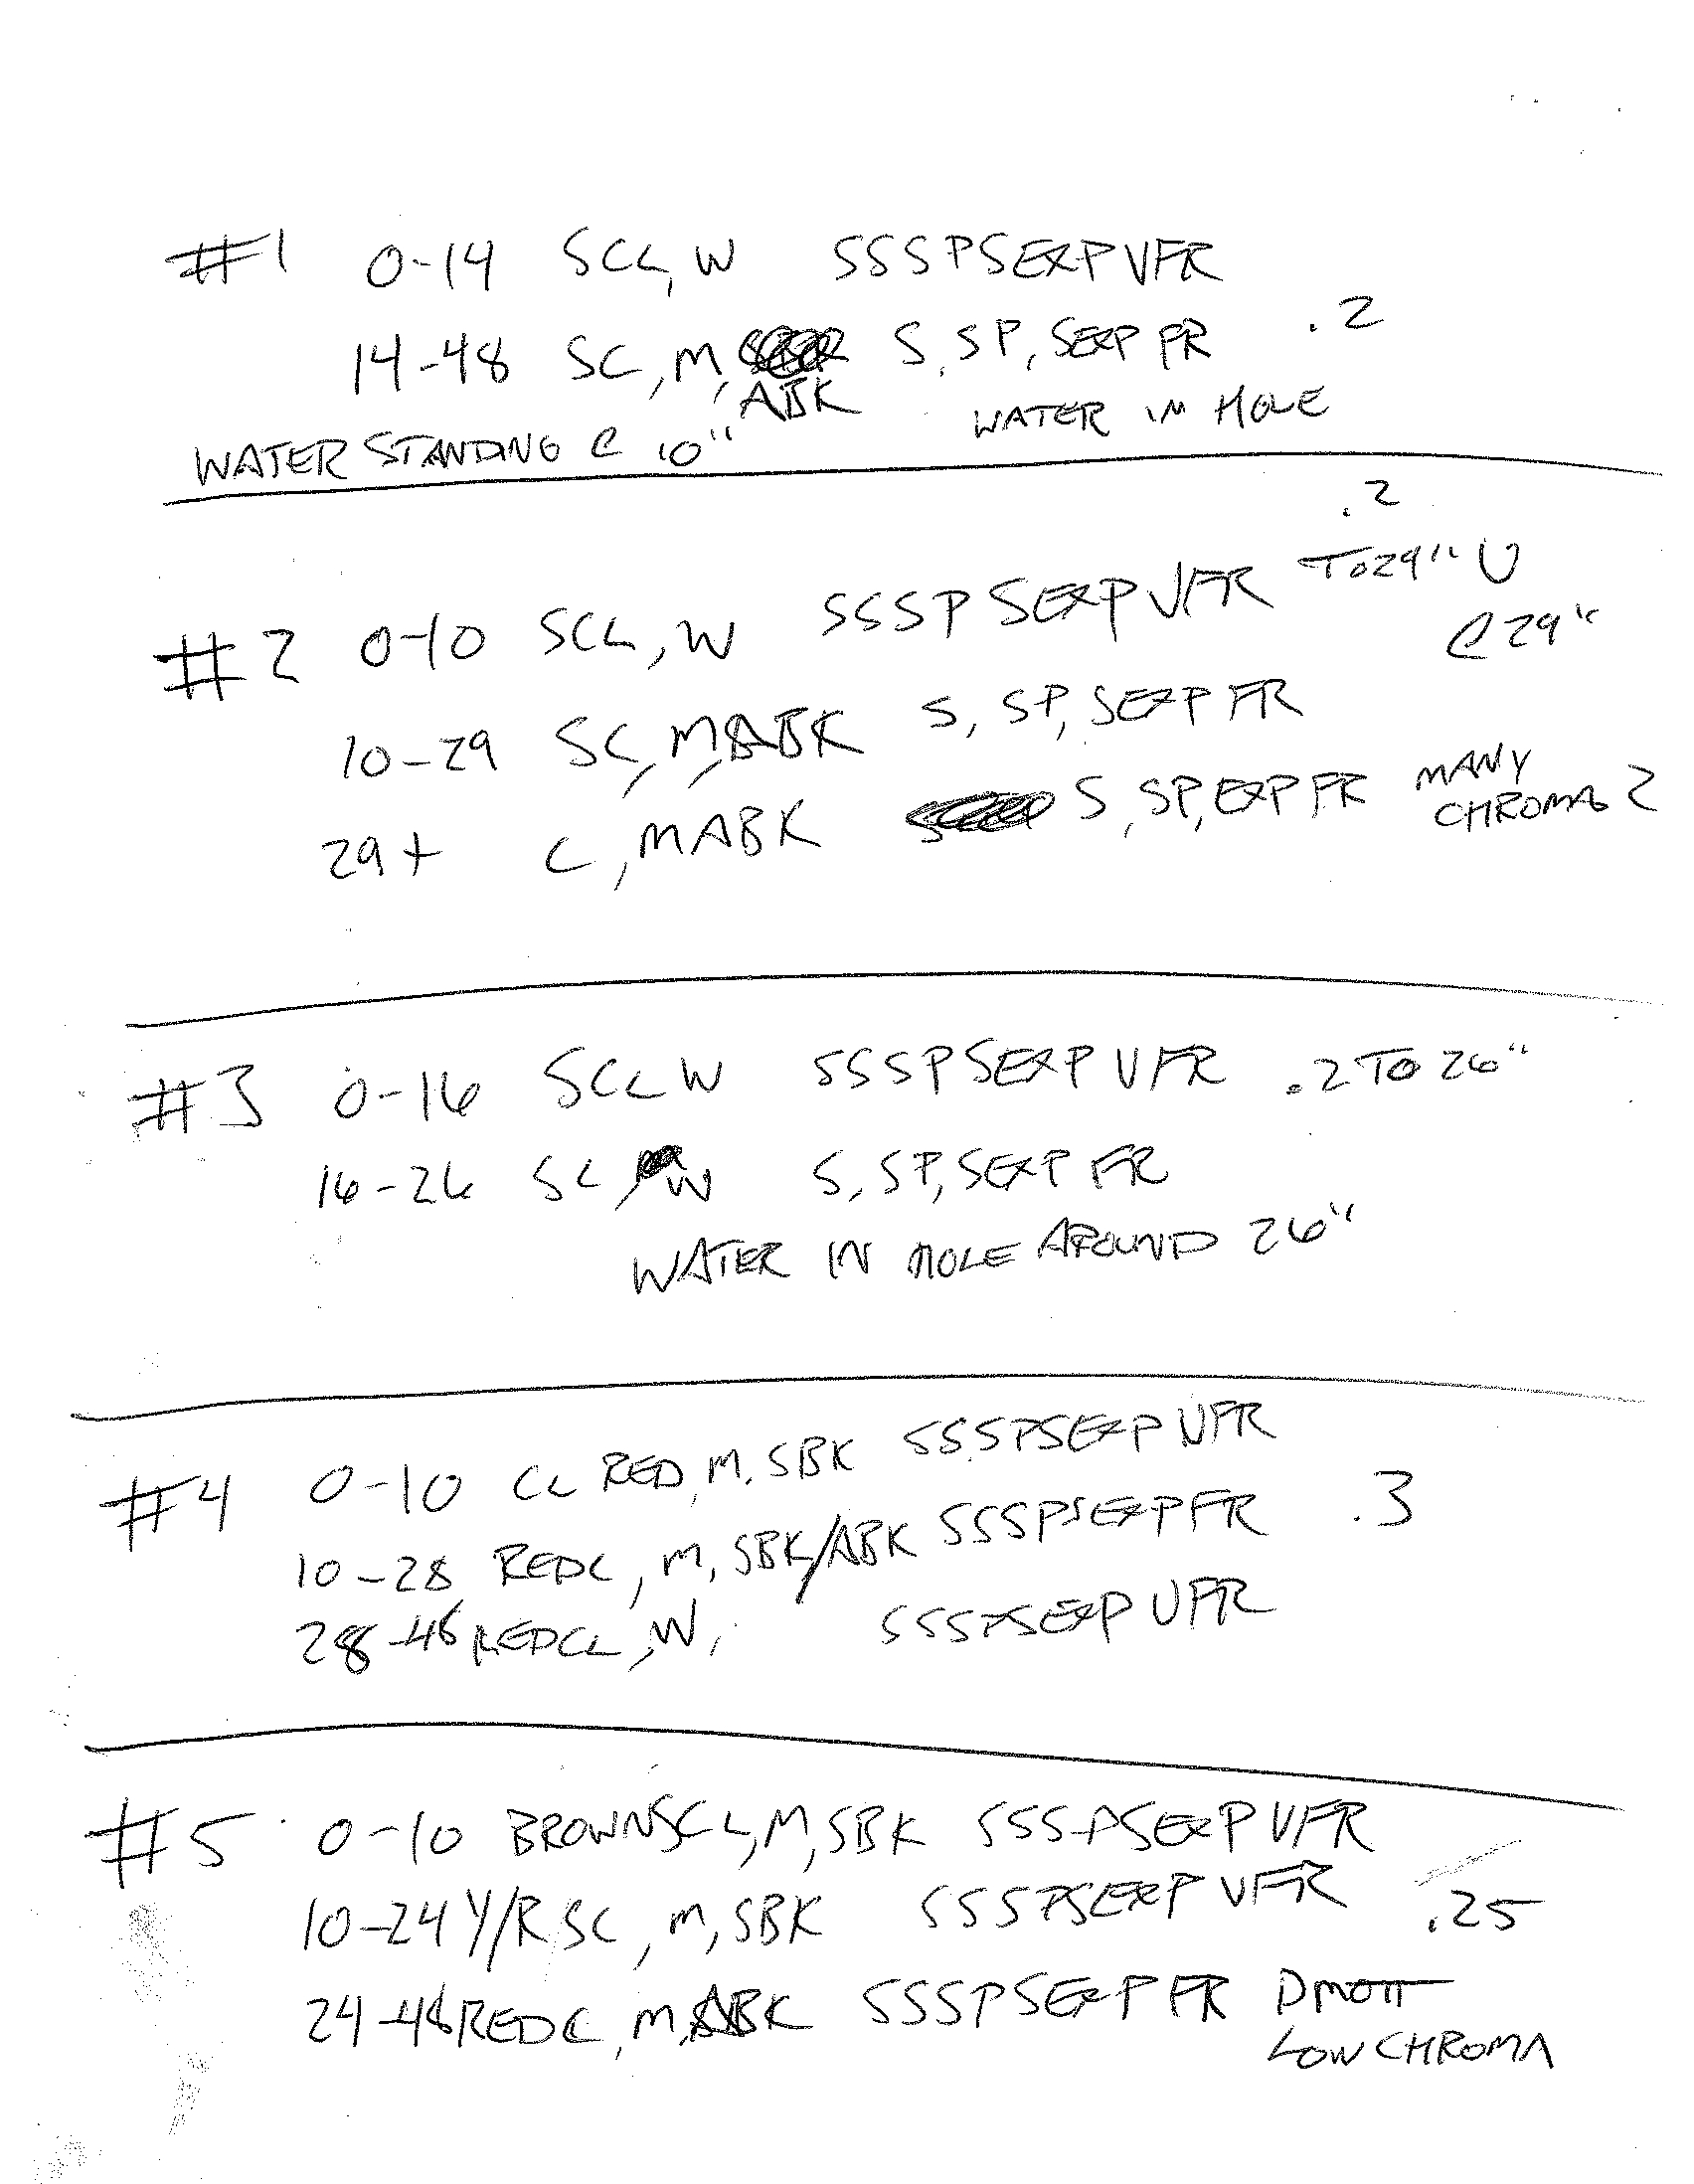 #1 0-14 SCL, W SSSPSEXPVFR
14-48 SC, M, ABK S, SP, SEXP FR .2
WATER STANDING @ 10" WATER IN HOLE
.2
#2 0-10 SCL, W SSSP SEXP VFR TO 29" U
@ 29"
10-29 SC, M, ABK S, SP, SEXP FR
29+ C, MABK S, SP, EXP FR MANY
CHROMA 2
#3 0-16 SCL W SSSPSEXP VFR .2 TO 26"
16-26 SC, W S, SP, SEXP FR
WATER IN HOLE AROUND 26"
#4 0-10 CL RED, M, SBK SSSPSEXP VFR
10-28 RED C, M, SBK/ABK SSSPSEXPFR .3
28-48 RED CL, W, SSSPSEXP VFR
#5 0-10 BROWN SCL, M, SBK SSSPSEXP VFR
10-24 Y/R SC, M, SBK SSSPSEXP VFR .25
24-48 RED C, M, ABK SSSPSEXP FR D MOTT
LOW CHROMA